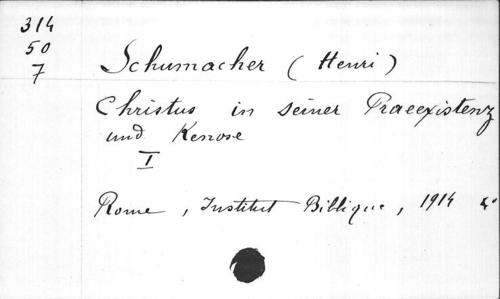 314
50
7
Schumacher (Henri)
Christus in seiner Praeexistenz
und Kenose
I
Rome, Institut Biblique, 1914